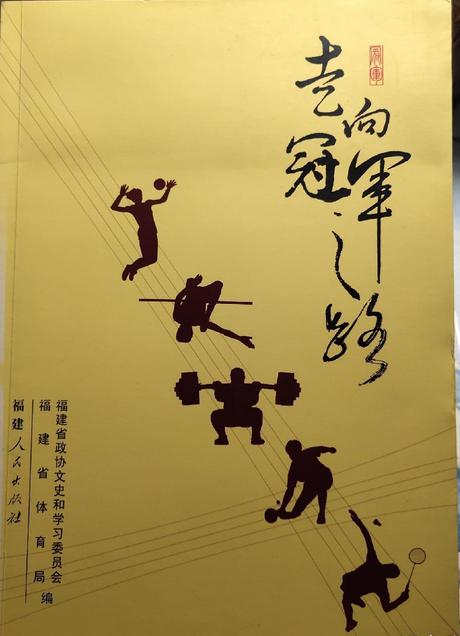 冠軍
走向冠军之路
福建省政协文史和学习委员会
福建省体育局
编
福建人民出版社